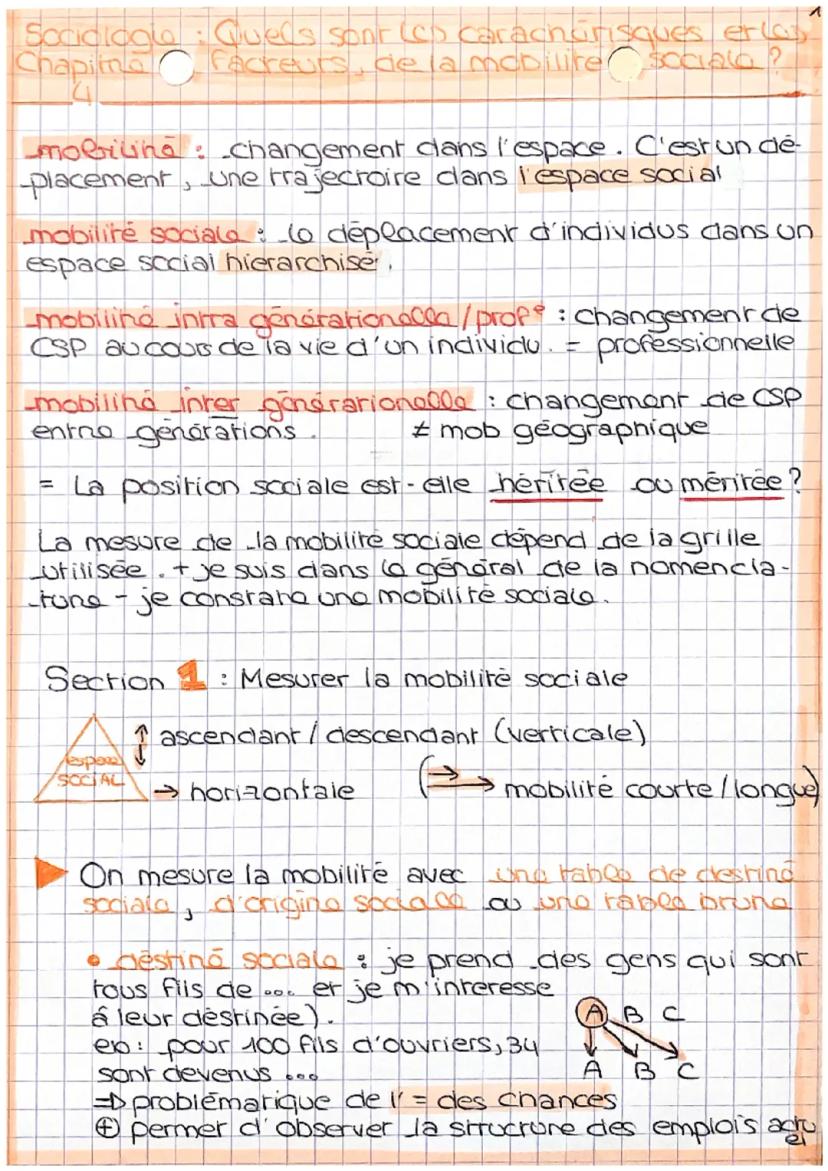 1
Sociologie : Quels sont les caractérisques et les
Chapitre facteurs, de la mobilité sociale ?
4
mobilité : changement dans l'espace. C'est un dé-
placement, une trajectroire dans l'espace social
mobilité sociale : le déplacement d'individus dans un
espace social hierarchisé.
mobilité intra générationelle / profᵉ : changement de
CSP au cours de la vie d'un individu. = professionnelle
mobilité inter générationelle : changement de CSP
entre générations. ≠ mob géographique
= La position sociale est-elle héritée ou méritée ?
La mesure de la mobilité sociale dépend de la grille
utilisée. + je suis dans le général de la nomencla-
-ture - je constate une mobilité sociale.
Section 1 : Mesurer la mobilité sociale
↕ ascendant / descendant (verticale)
espace
SOCIAL
→ horizontale (→ ⟶ mobilité courte / longue)
▶ On mesure la mobilité avec une table de destiné
sociale, d'origine sociale ou une table brute
• destiné sociale : je prend des gens qui sont
tous fils de ... et je m'interesse
à leur déstinée).
A B C
ex : pour 100 fils d'ouvriers, 34
sont devenus ...
A B C
⇒ problématique de l' = des chances
⊕ permet d'observer la structure des emplois actu
el